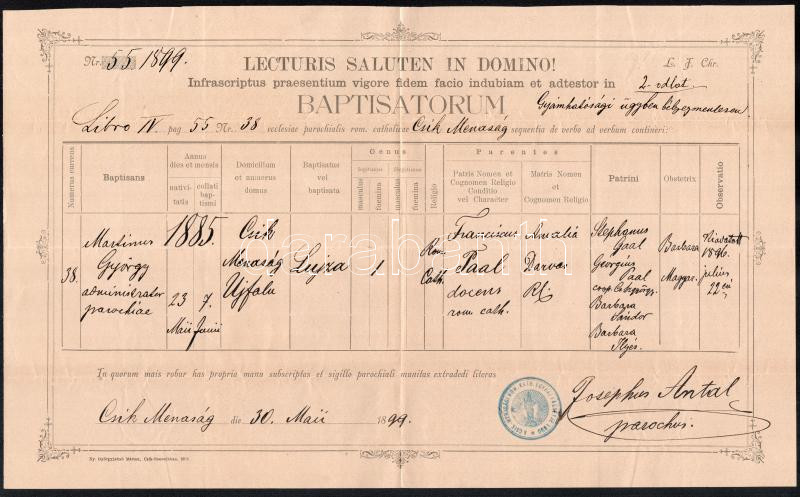 Nr. 55/1899.
LECTURIS SALUTEN IN DOMINO!
L. J. Chr.
Infrascriptus praesentium vigore fidem facio indubiam et adtestor in
2-odlat
BAPTISATORUM
Gyámhatósági ügyben bélyegmentesen
Libro IV. pag 55 Nr. 38 ecclesiae parochialis rom. catholicae Csik Menaság sequentia de verbo ad verbum contineri:
Numerus currens
Baptisans
Annus dies et mensis
nativitatis
collati baptismi
Domicilium et numerus domus
Baptisatus vel baptisata
Genus
legitimus
masculus
foemina
illegitimus
masculus
foemina
Religio
Parentes
Patris Nomen et Cognomen Religio Conditio vel Character
Matris Nomen et Cognomen Religio
Patrini
Obstetrix
Observatio
38.
Martinus
György
administrator
parochiae
1885.
23 7.
Maii Junii
Csik
Menaság
Ujfalu
Lujza
1
Rom.
Cath.
Franciscus
Paal
docens
rom. cath.
Amalia
Darvas
Stephanus
Gaal
Georgius
Paal
Barbara
Sándor
Barbara
Ilyés.
Barbara
Magyar.
Kiadatott
1896.
julius
22 én
In quorum mais robur has propria manu subscriptas et sigillo parochiali munitas extradedi literas
Csik Menaság die 30. Maii 1899.
Josephus Antal
parochus.
darabanth